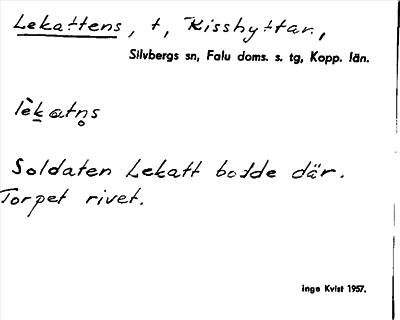 Lekattens, t, Kisshyttan,
Silvbergs sn, Falu doms. s. tg, Kopp. län.
lèk atn̥s
Soldaten Lekatt bodde där.
Torpet rivet.
Inga Kvist 1957.